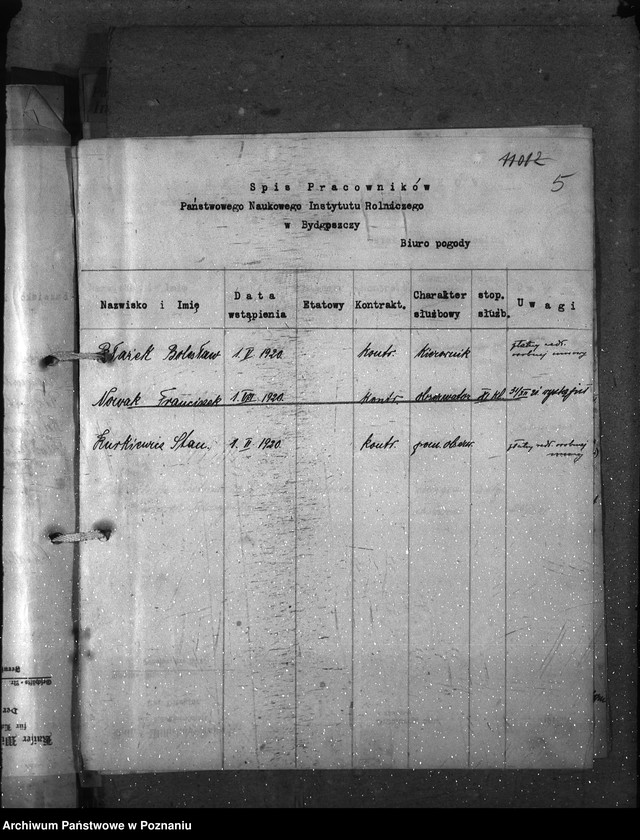 11012
5
Spis Pracowników
Państwowego Naukowego Instytutu Rolniczego
w Bydgoszczy
Biuro pogody
Nazwisko i Imię Data wstąpienia Etatowy Kontrakt. Charakter służbowy stop. służb. Uwagi
Bolesław 1. V 1920. kontr. Kierownik płatny wedł. osobnej umowy
Nowak Franciszek 1. VIII 1920. kontr. obserwator XI kl. wystąpił
Kurkiewicz Stan. 1. 1920. kontr. pom. obserw. płatny wedł. osobnej umowy
Archiwum Państwowe w Poznaniu